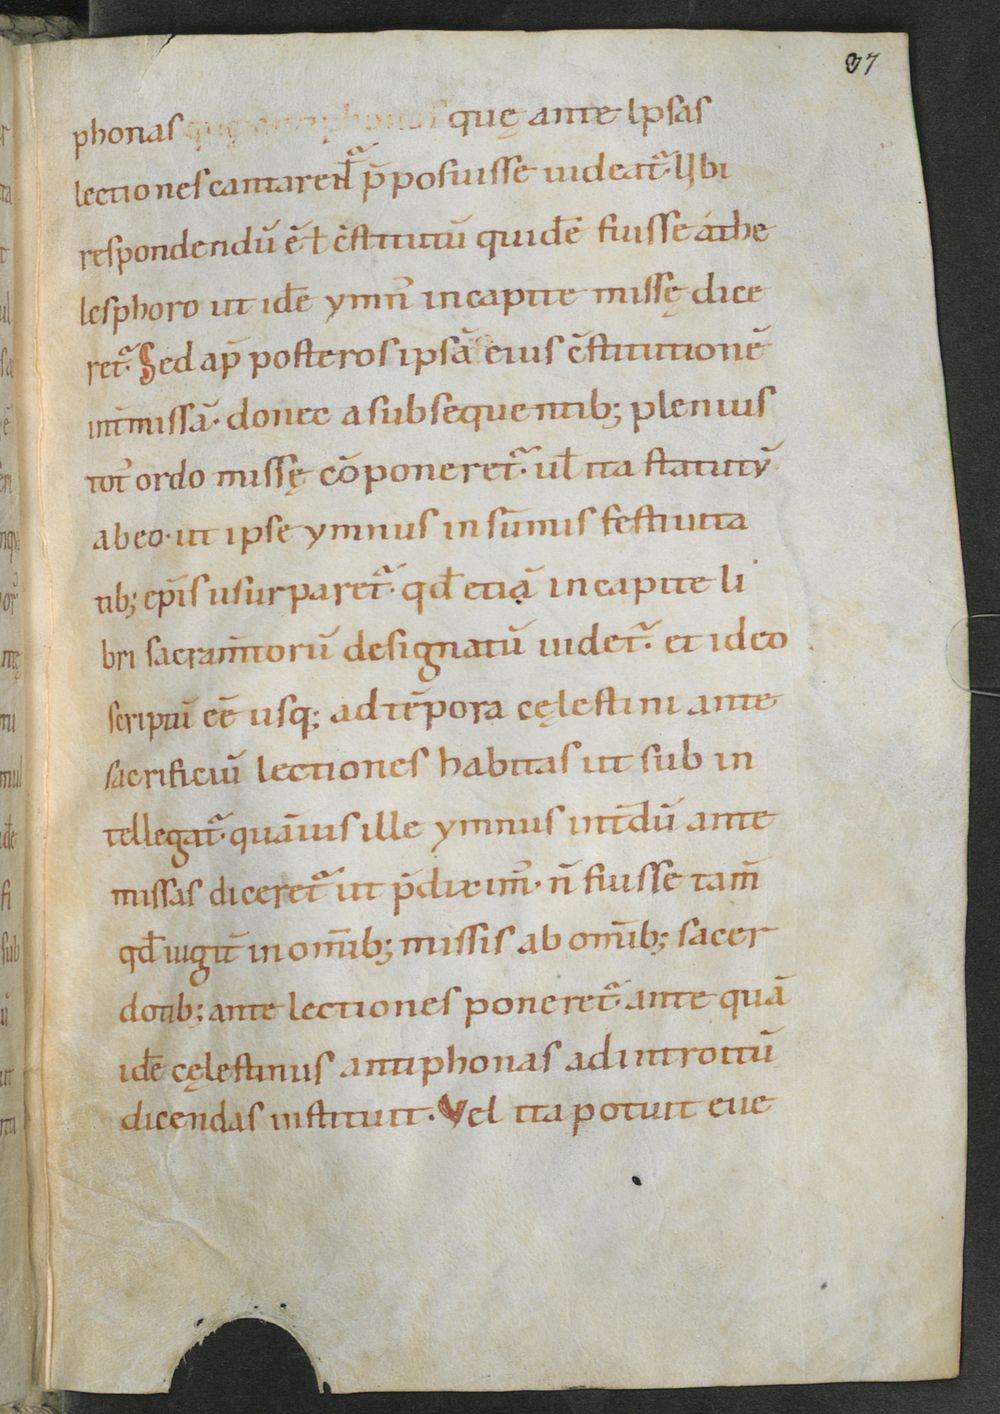 37
phonas quę ante Ipsas
lectiones cantarent᷑ p̄posuisse uideat᷑. Ubi
respondendū ē ł c̄stitutū quidē fuisse áthe
lesphoro ut idē ymn᷒ in capite missę dice
ret᷑. Sed ap̄ posteros ipsā eius c̄stitutionē
int̄missā. donec a subsequentib; plenius
tot᷒ ordo missę cōponeret᷑. uł ita statutū
ab eo. ut ipse ymnus in sūmis festiuita
tib; ep̄is usurparet᷑. qđ etiā in capite li
bri sacram̄torū designatū uidet᷑. et ideo
scriptū eē usq; ad tēpora cęlestini ante
sacrificiū lectiones habitas ut sub in
tellegat᷑. quāuis ille ymnus int̄dū ante
missas diceret᷑ ut p̄dixim᷒. n̄ fuisse tam̄
qđ iugit̄ in om̄ib; missis ab om̄ib; sacer
dotib; ante lectiones poneret᷑ ante quā
idē cęlestinus antiphonas ad introitū
dicendas instituit. Vel ita potuit eue